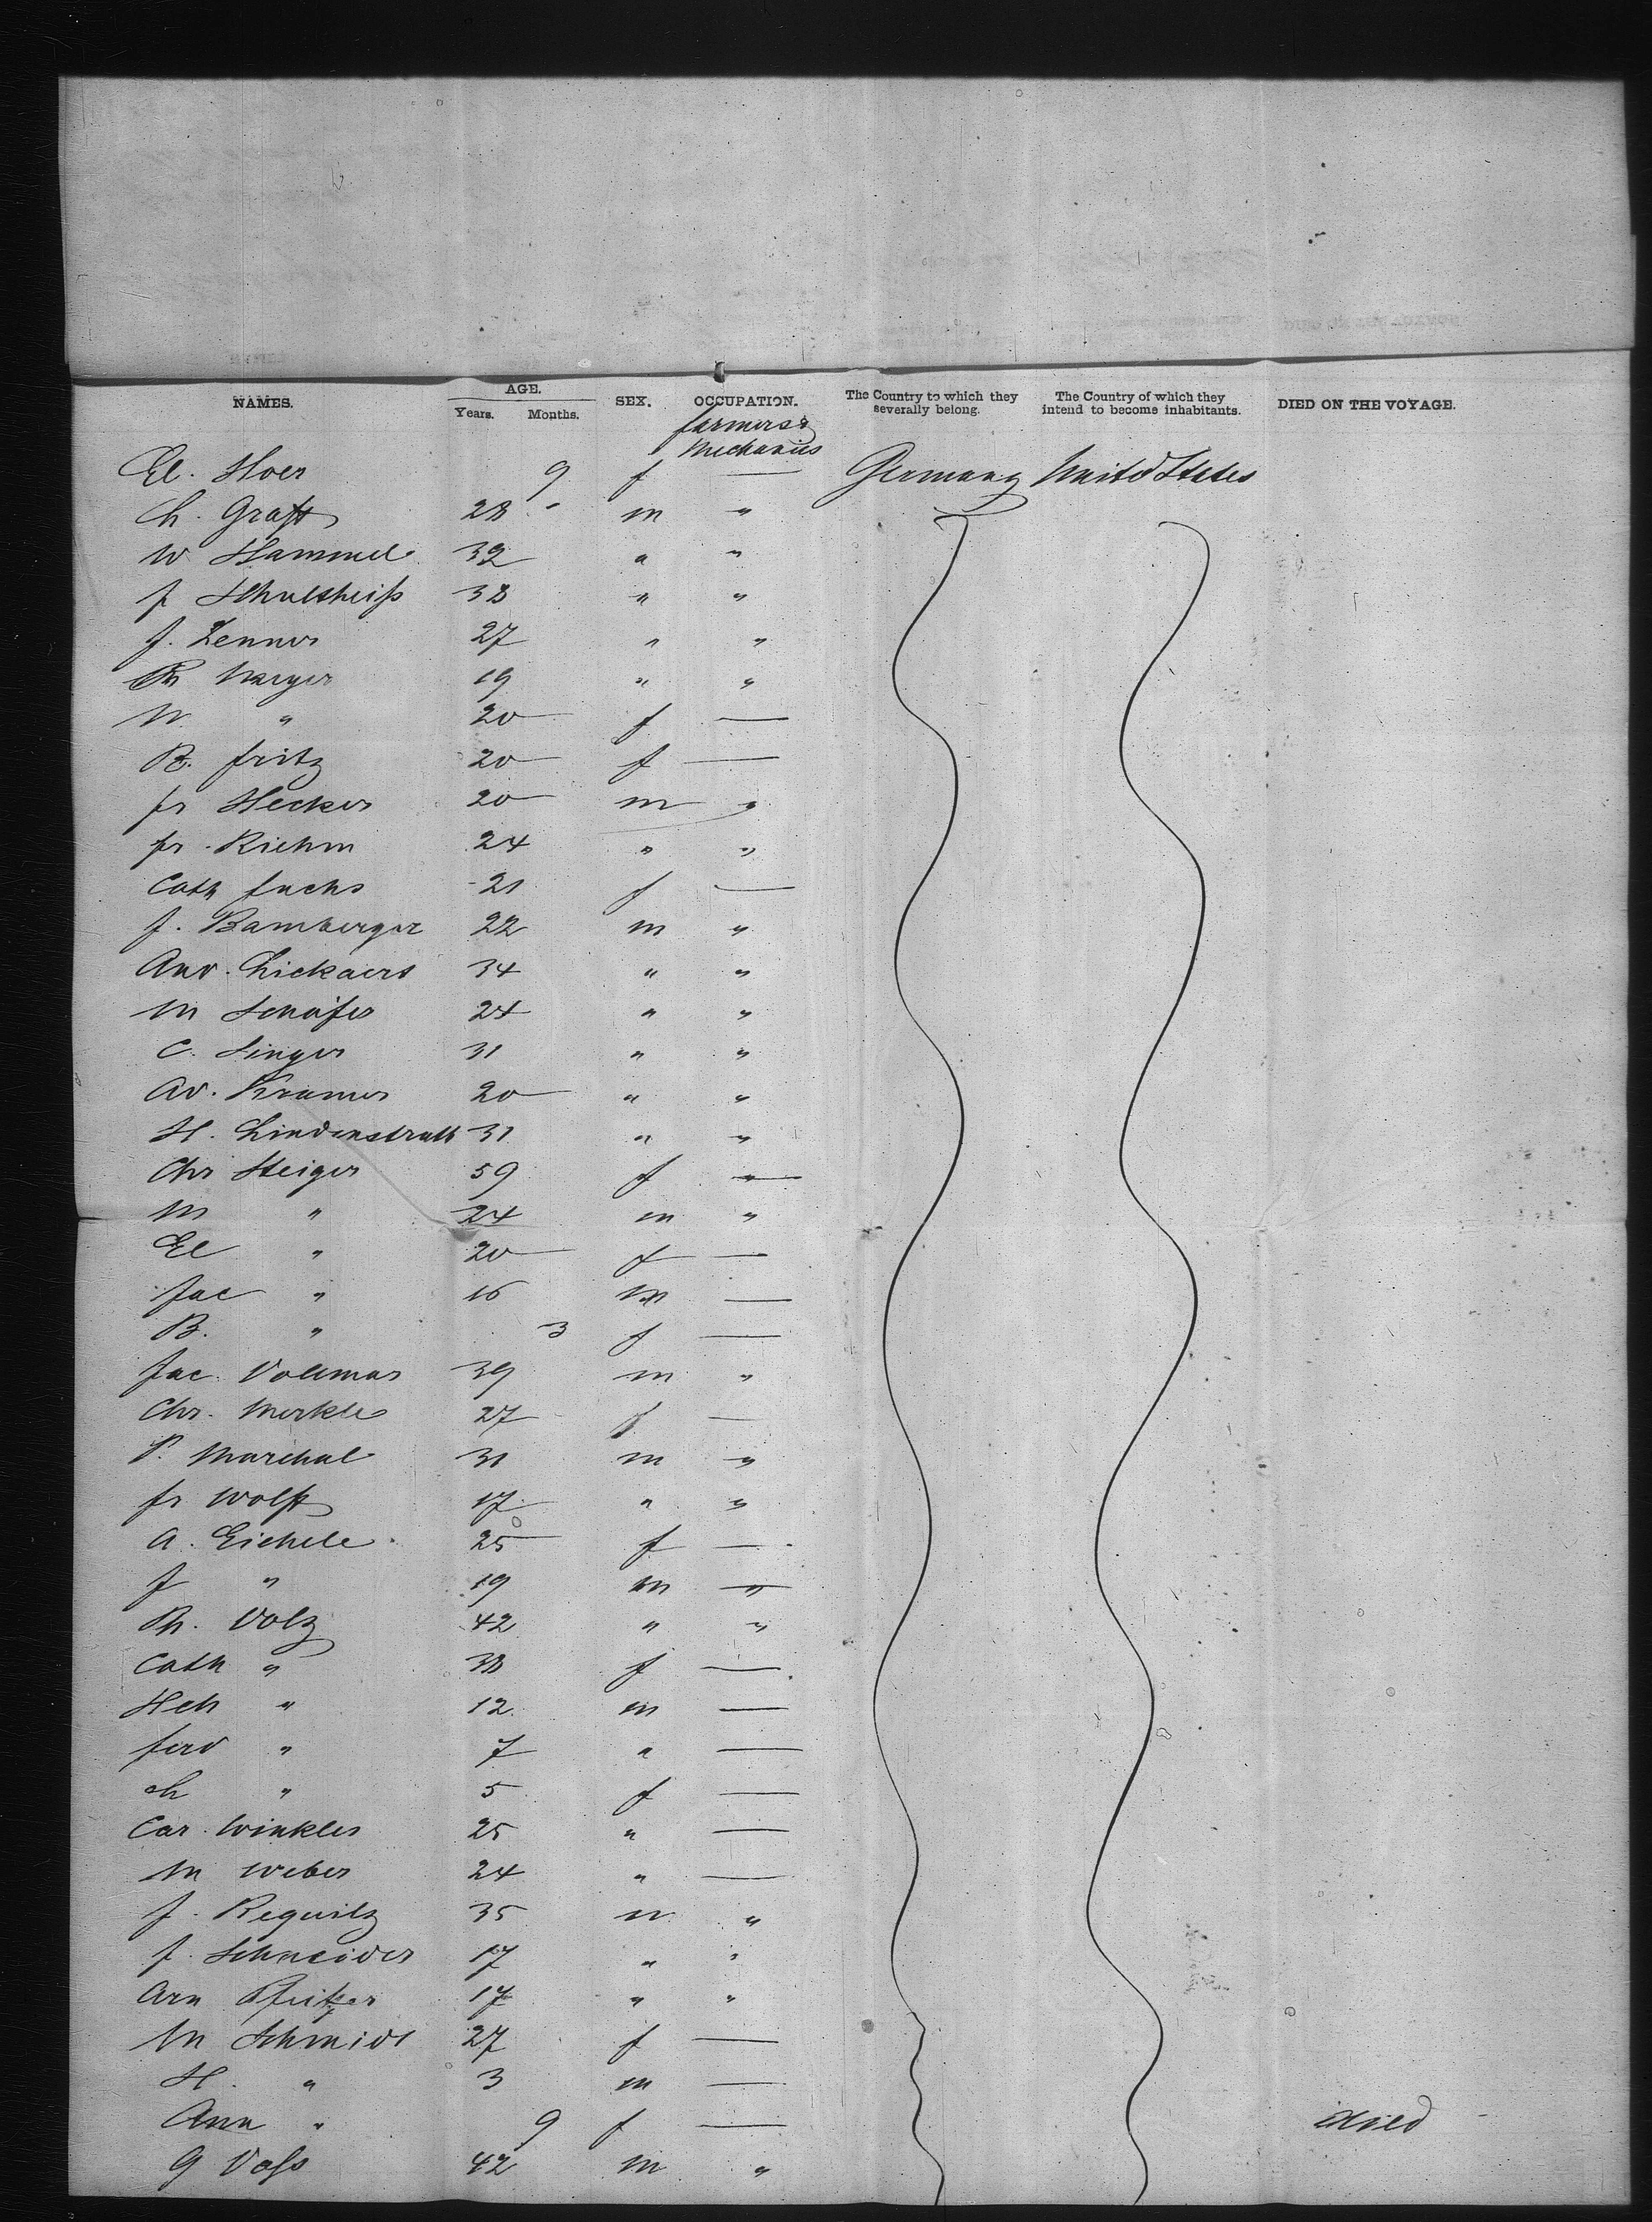 NAMES. AGE. Years. Months. SEX. OCCUPATION. The Country to which they severally belong. The Country of which they intend to become inhabitants. DIED ON THE VOYAGE.
farmers &
Mechanics
El. Hoer 9 f — Germany United States
Ch. Graff 28 - m "
W Hammel 32 " "
J Schultheiß 38 " "
J. Zenner 27 " "
Ph 19 " "
" 20 f —
B. Fritz 20 f —
Fr Hecker 20 m "
Fr. Riehm 24 " "
Cath Fuchs 21 f —
J. Bamberger 22 m "
And. Lickaert 34 " "
M Schäfer 24 " "
C. Singer 31 " "
Ad. Kramer 20 " "
H. Lindenstruth 31 " "
Chr Steiger 59 f "
M " 24 m "
El " 20 f —
Jac " 16 m —
B. " 3 f —
Jac. Vollmar 39 m "
Chr. Merkle 27 f —
P. Marchal 31 m "
Fr Wolff 17 " "
A. Eichele 25 f —
J " 19 m "
Ph. Volz 42 " "
Cath " 38 f —
Hch " 12 m —
Ferd " 7 " —
Ch " 5 f —
Car. Winkler 25 " —
M Weber 24 " —
J. 35 m "
J. Schneider 17 " "
Arn 17 " "
M Schmidt 27 f —
H. " 3 m —
Ann " 9 f — died
G Voß 42 m "